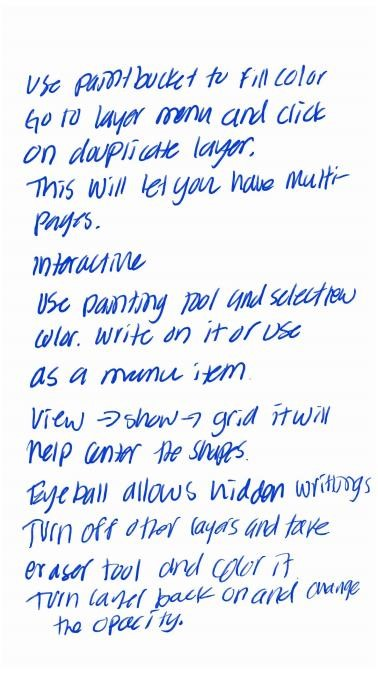 Use paintbucket to fill color
Go to layer menu and click
on douplicate layer.
This will let you have multi-
pages.
interactive
Use painting tool and selection
color. Write on it or use
as a menu item
View → show → grid it will
help center the shapes.
Eyeball allows hidden writings
Turn off other layers and take
eraser tool and color it
Turn layer back on and change
the opacity.